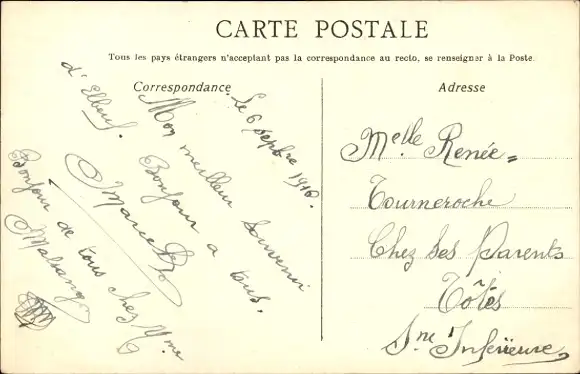 CARTE POSTALE
Tous les pays étrangers n'acceptant pas la correspondance au recto, se renseigner à la Poste.
Correspondance
Le 6 Septbre 1916.
Mon meilleur Souvenir
d'Elbeuf.
Bonjour a tous.
Marcel
Bonjour de tous chez Mme
Adresse
Melle Renée
Tourneroche
Chez Ses Parents
Tôtes
Sne Inférieure